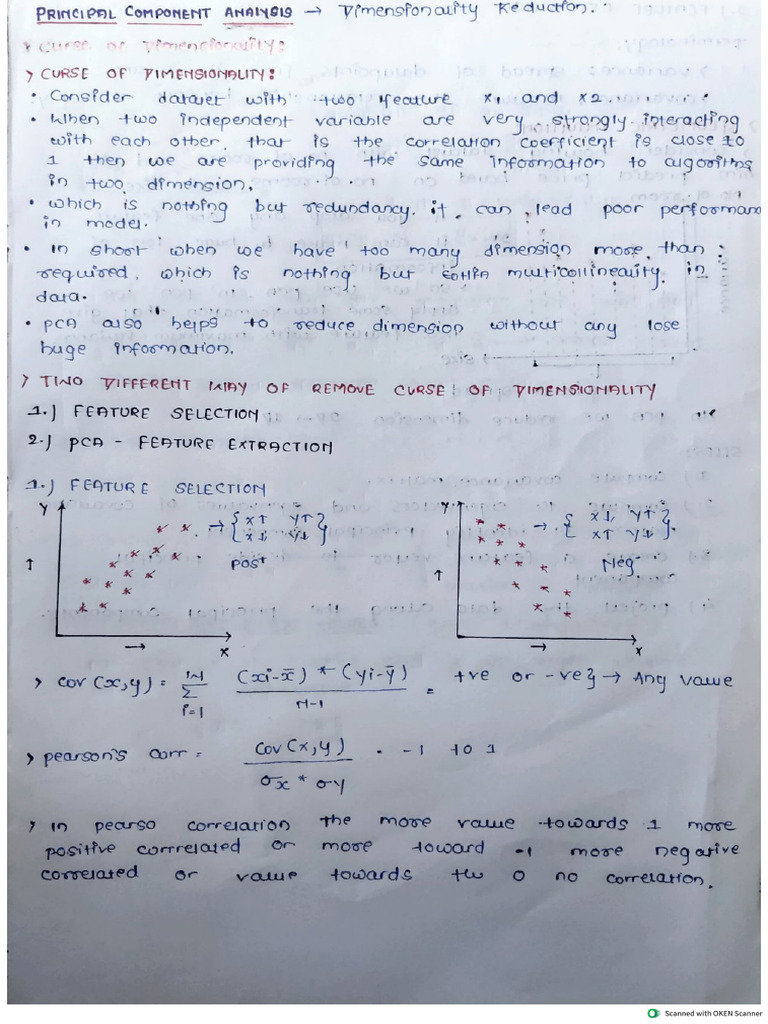 PRINCIPAL COMPONENT ANALYSIS → Dimensionality Reduction.
> CURSE OF DIMENSIONALITY:
> CURSE OF DIMENSIONALITY:
• Consider dataset with two feature x1 and x2.
• When two independent variable are very strongly interacting
with each other, that is the correlation coefficient is close to
1 then we are providing the same information to algorithms
in two dimension.
• which is nothing but redundancy. it can lead poor performan
in model.
• In short when we have too many dimension more than
required, which is nothing but multicollinearity. in
data.
• PCA also helps to reduce dimension without any lose
huge information.
> TWO DIFFERENT WAY OF REMOVE CURSE OF DIMENSIONALITY
1.) FEATURE SELECTION
2.) PCA - FEATURE EXTRACTION
1.) FEATURE SELECTION
Y → {x↑ y↑
x↓ y↓}
Pos+
↑
→ x
Y → {x↓ y↑
x↑ y↓}
Neg
↑
→ x
> cov(x,y) = N Σ i=1 (xi-x̄) * (yi-ȳ) / N-1 = +ve or -ve} → Any value
> pearson's corr = cov(x,y) / σx * σy • -1 to 1
> in pearso correlation the more value towards 1 more
positive corrrelated or more toward -1 more negative
correlated or value towards the 0 no correlation.
Scanned with OKEN Scanner